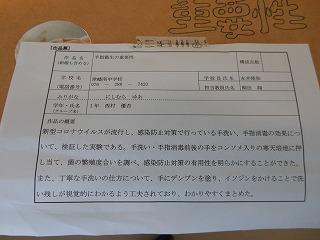 【出品票】
作品名
手指衛生の重要性
構成点数
学校名
津幡南中学校
学校長氏名
(電話番号)
076 － 288 － 7420
担当教諭氏名
ふりがな
にしむら ゆあ
学年・氏名
1年 西村 優杏
作品の概要
新型コロナウイルスが流行し、感染防止対策で行っている手洗い、手指消毒の効果につ
いて、検証した実験である。手洗い・手指消毒前後の手をコンソメ入りの寒天培地に押
し当て、菌の繁殖度合いを調べ、感染防止対策の有用性を明らかにすることができた。
また、丁寧な手洗いの仕方について、手にデンプンを塗り、イソジンをかけることで洗
い残しが視覚的にわかるよう工夫されており、わかりやすくまとめた。